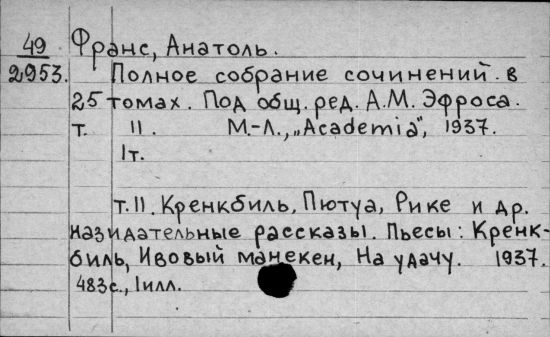 49 Франс, Анатоль.
2953. Полное собрание сочинений. в
25 томах. Под общ. ред. А.М. Эфроса.
т. II. М.-Л., „Academia", 1937.
1т.
т.II. Кренкбиль, Пютуа, Рике и др.
назидательные рассказы. Пьесы: Кренк-
биль, Ивовый манекен, На удачу. 1937.
483с., 1илл.